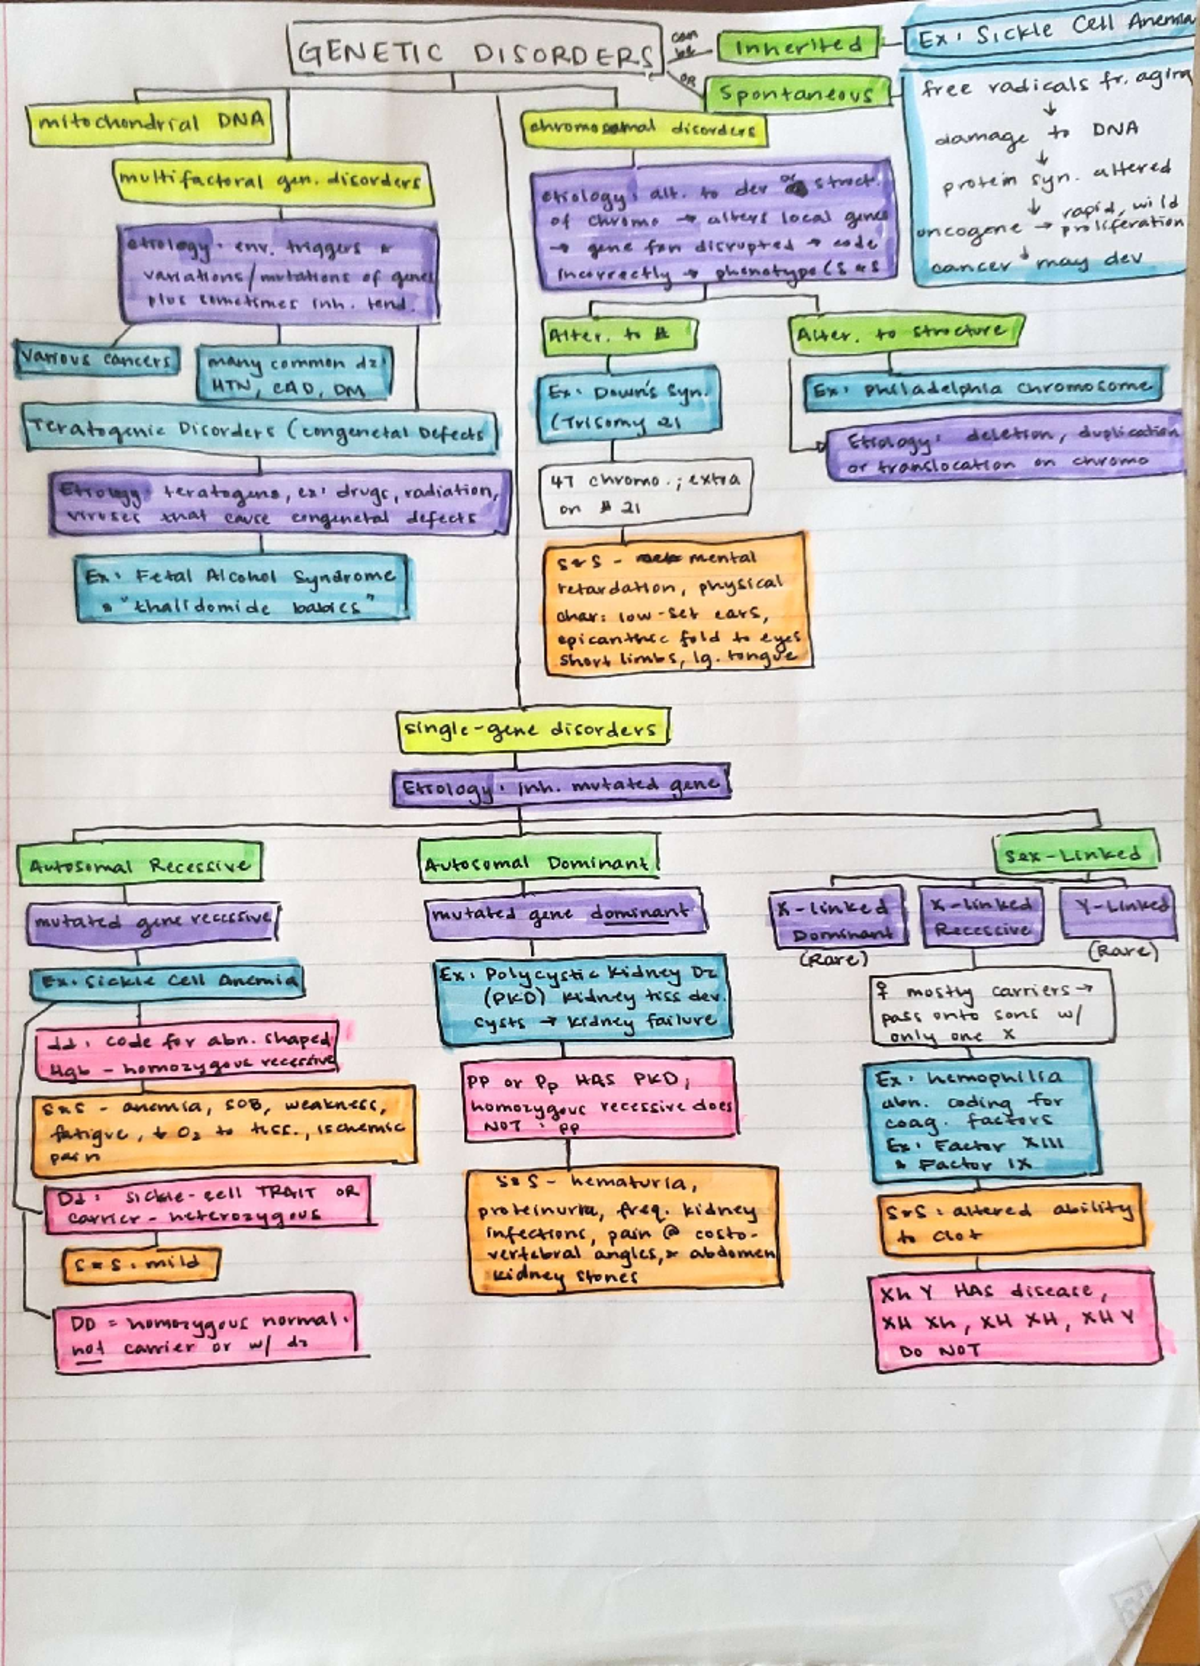 GENETIC DISORDERS
can be
OR
Inherited
Ex: Sickle Cell Anemia
Spontaneous
free radicals fr. aging
↓
damage to DNA
↓
protein syn. altered
↓
oncogene → rapid, wild
proliferation
↓
cancer may dev
mitochondrial DNA
multifactoral gen. disorders
etiology: env. triggers &
variations/mutations of genes
plus sometimes inh. tend.
various cancers
many common dz:
HTN, CAD, DM
Teratogenic Disorders (congenetal Defects
Etiology: teratogens, ex: drugs, radiation,
viruses that cause congenetal defects
Ex: Fetal Alcohol Syndrome
& "thalidomide babies"
chromosomal disorders
etiology: alt. to # or struct.
of chromo → alters local genes
→ gene fxn disrupted → code
incorrectly → phenotype (S&S
Alter. to #
Ex: Down's Syn.
(Trisomy 21
47 chromo.; extra
on # 21
S&S - mental
retardation, physical
char: low-set ears,
epicanthic fold to eyes
short limbs, lg. tongue
Alter. to structure
Ex: Philadelphia chromosome
Etiology: deletion, duplication
or translocation on chromo
single-gene disorders
Etiology: inh. mutated gene
Autosomal Recessive
mutated gene recessive
Ex: Sickle Cell Anemia
dd: code for abn. shaped
Hgb - homozygous recessive
S&S - anemia, SOB, weakness,
fatigue, ↓ O2 to tiss., ischemic
pain
Dd: sickle-cell TRAIT OR
carrier - heterozygous
S&S: mild
DD = homozygous normal.
not carrier or w/ dz
Autosomal Dominant
mutated gene dominant
Ex: Polycystic Kidney Dz
(PKD) kidney tiss dev.
cysts → kidney failure
PP or Pp HAS PKD;
homozygous recessive does
NOT: pp
S&S - hematuria,
proteinuria, freq. kidney
infections, pain @ costo-
vertebral angles, & abdomen
kidney stones
Sex-Linked
X-linked
Dominant
(Rare)
X-linked
Recessive
Y-Linked
(Rare)
♀ mostly carriers →
pass onto sons w/
only one X
Ex: hemophilia
abn. coding for
coag. factors
Ex: Factor XIII
& Factor IX
S&S: altered ability
to clot
Xh Y HAS disease,
XH Xh, XH XH, XH Y
DO NOT